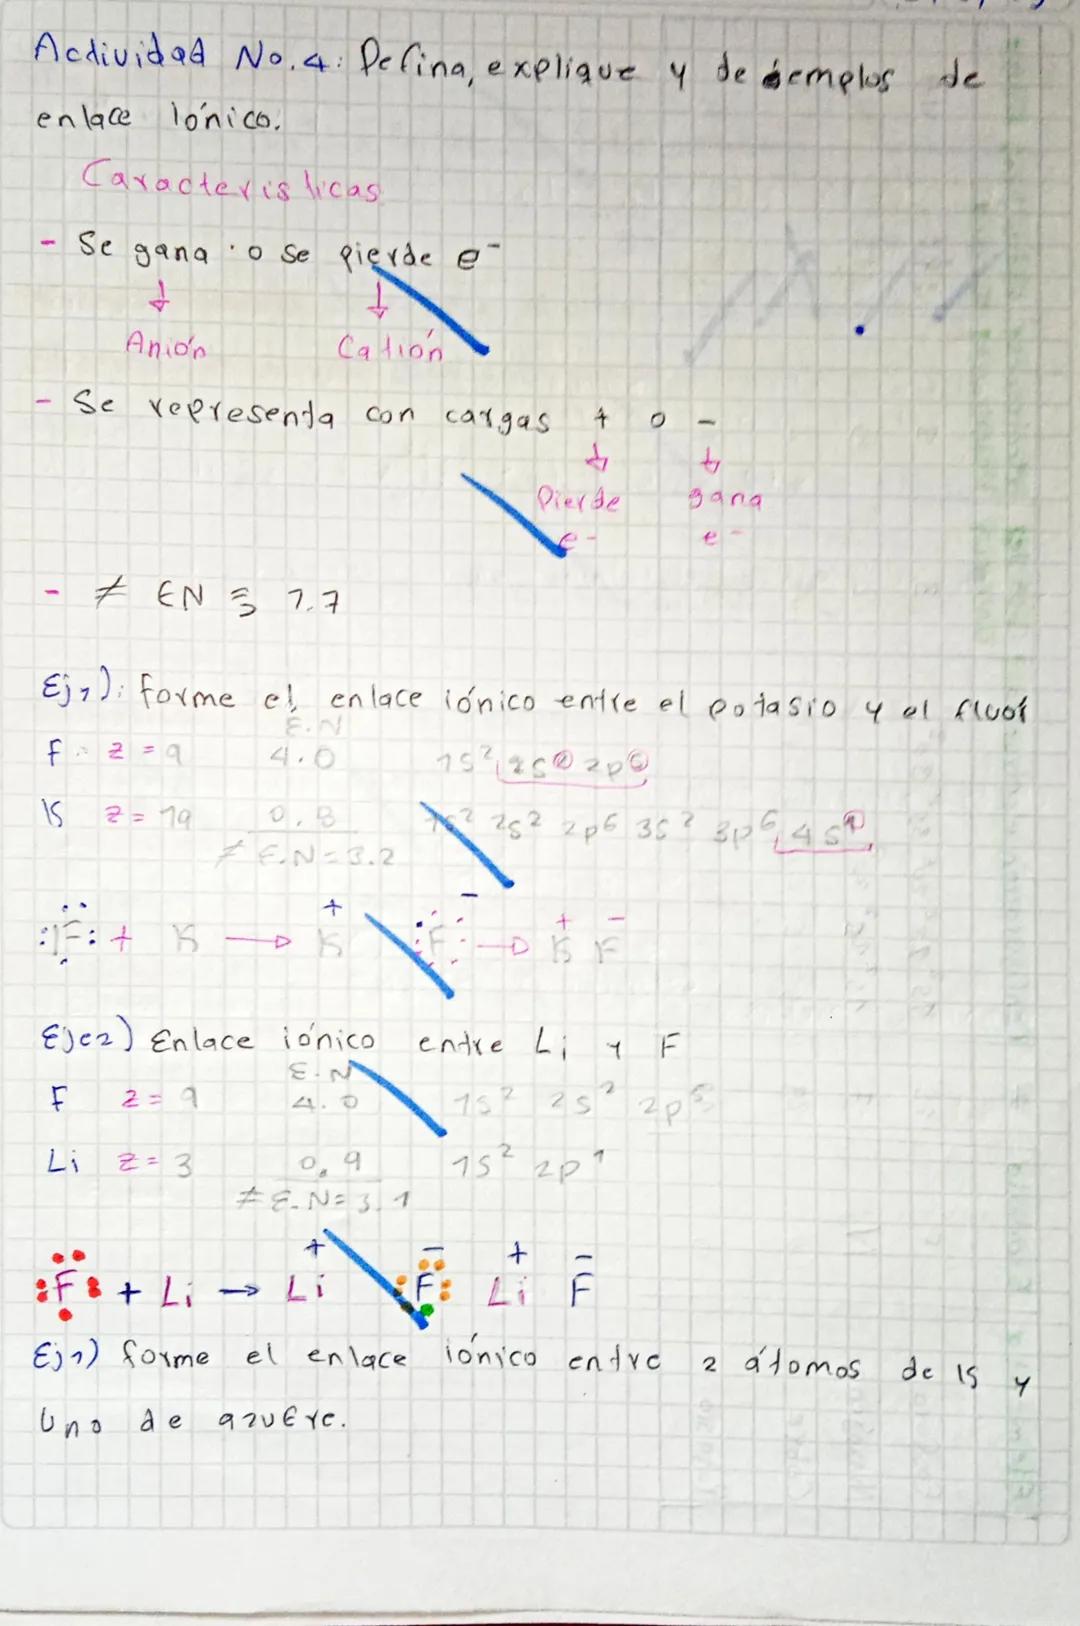 Actividad No. 4: Defina, explique y de ejemplos de
enlace iónico.
Caracteristicas
- Se gana o se pierde e⁻
↓ ↓
Anión Catión
- Se representa con cargas + o -
↓ ↓
Pierde gana
e- e-
- ≠ EN ≥ 1.7
Ej1): forme el enlace iónico entre el potasio y el fluor
E.N
F z = 9 4.0 1s² 2s② 2p⑤
K z = 19 0.8 1s² 2s² 2p⁶ 3s² 3p⁶ 4s①
≠ E.N = 3.2
+ - + -
:F: + K → K :F: → K F
Eje2) Enlace iónico entre Li y F
E.N
F z = 9 4.0 1s² 2s² 2p⁵
Li z = 3 0.9 1s² 2p¹
≠ E.N = 3.1
+ - + -
:F: + Li → Li :F: Li F
Ej1) forme el enlace iónico entre 2 átomos de K y
Uno de azufre.